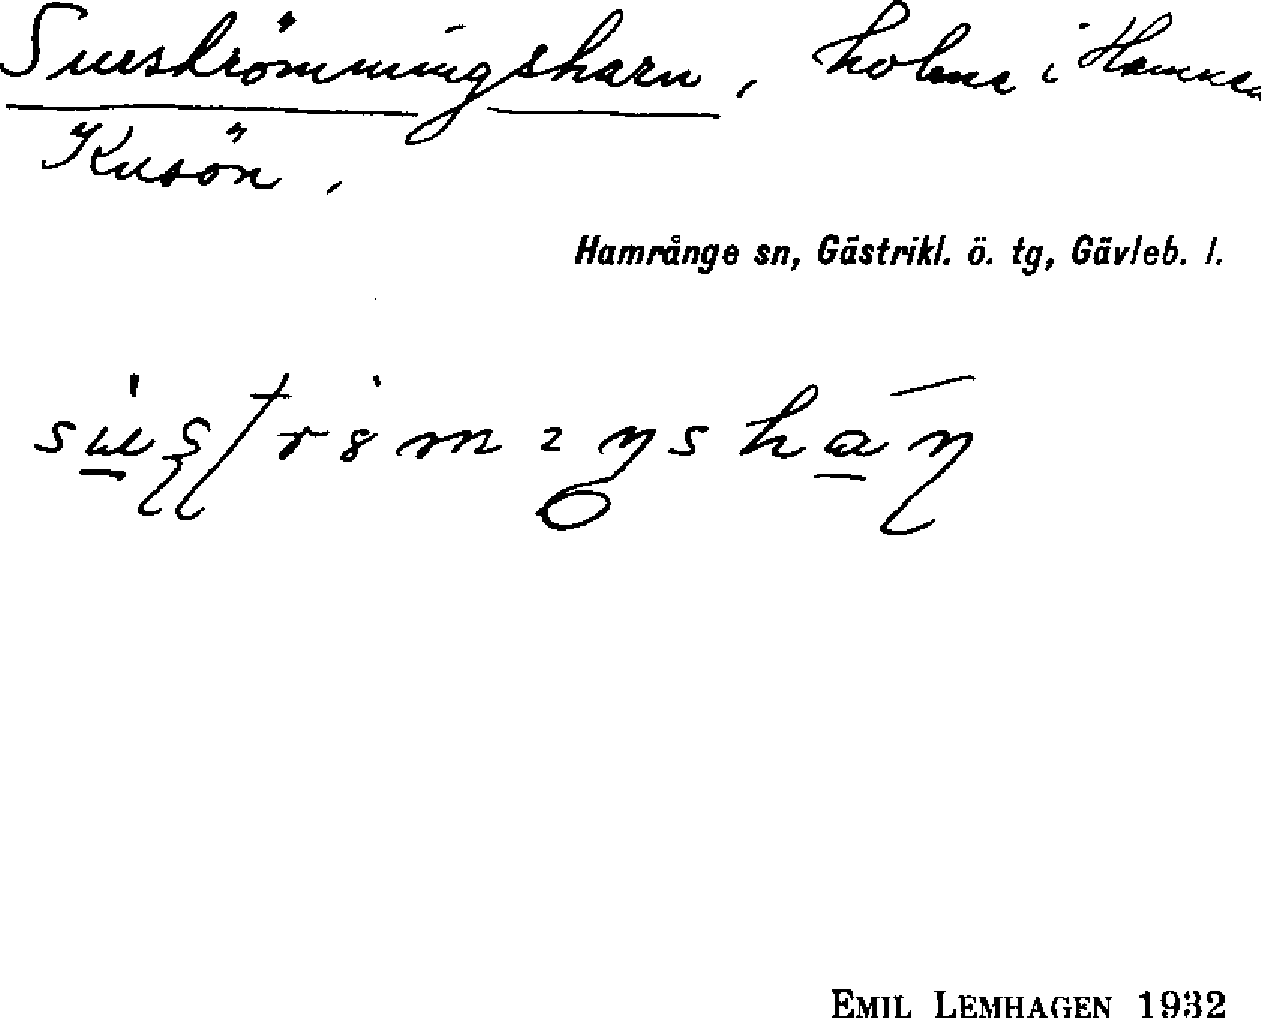 Surströmmingsharn, holme i
Kusön.
Hamrånge sn, Gästrikl. ö. tg, Gävleb. l.
EMIL LEMHAGEN 1932